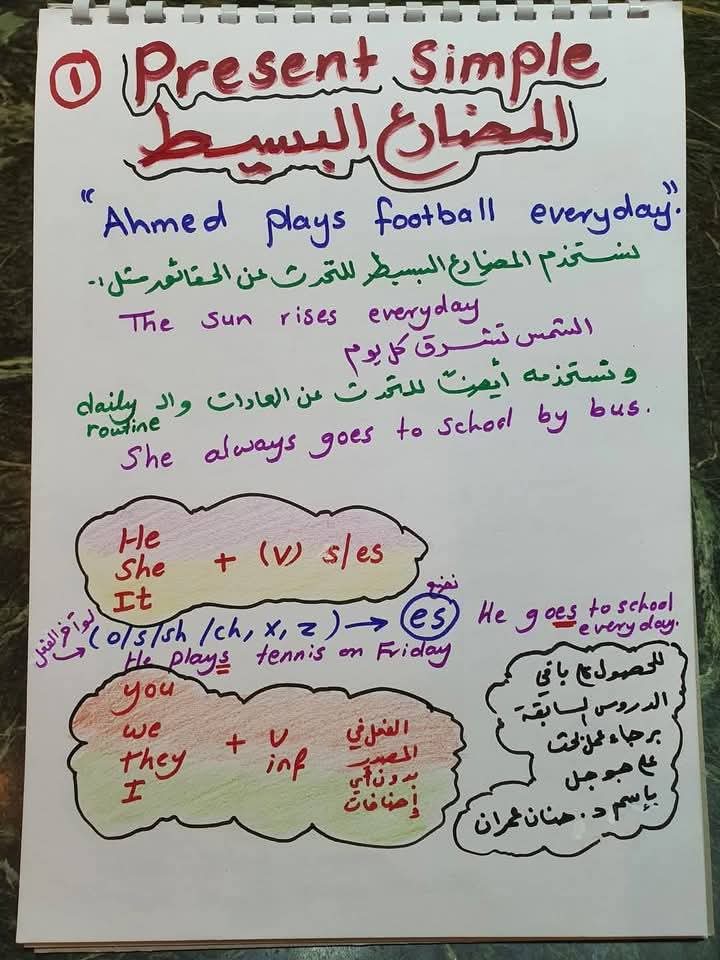 1
Present Simple
المضارع البسيط
"Ahmed plays football everyday".
نستخدم المضارع البسيط للتحدث عن الحقائق مثل :-
The sun rises everyday
الشمس تشرق كل يوم
ونستخدمه أيضاً للتحدث عن العادات وال daily routine
She always goes to school by bus.
He
She + (v) s/es
It
لو آخر الفعل (o/s/sh/ch, x, z) → es نضع
He goes to school everyday.
He plays tennis on Friday
you
we
they + v inf
I
الفعل في
المصدر
بدون أي
إضافات
للحصول على باقي
الدروس السابقة
برجاء عمل بحث
على جوجل
بإسم د. حنان عمران